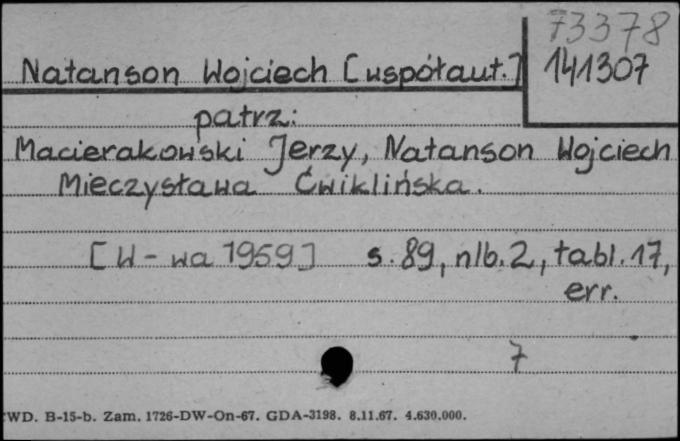 73378
Natanson Wojciech [współaut.]
141307
patrz:
Macierakowski Jerzy, Natanson Wojciech
Mieczysława Ćwiklińska.
[W-wa 1959] s. 89, nlb. 2, tabl. 17,
err.
7
WD. B-15-b. Zam. 1726-DW-On-67. GDA-3198. 8.11.67. 4.630.000.